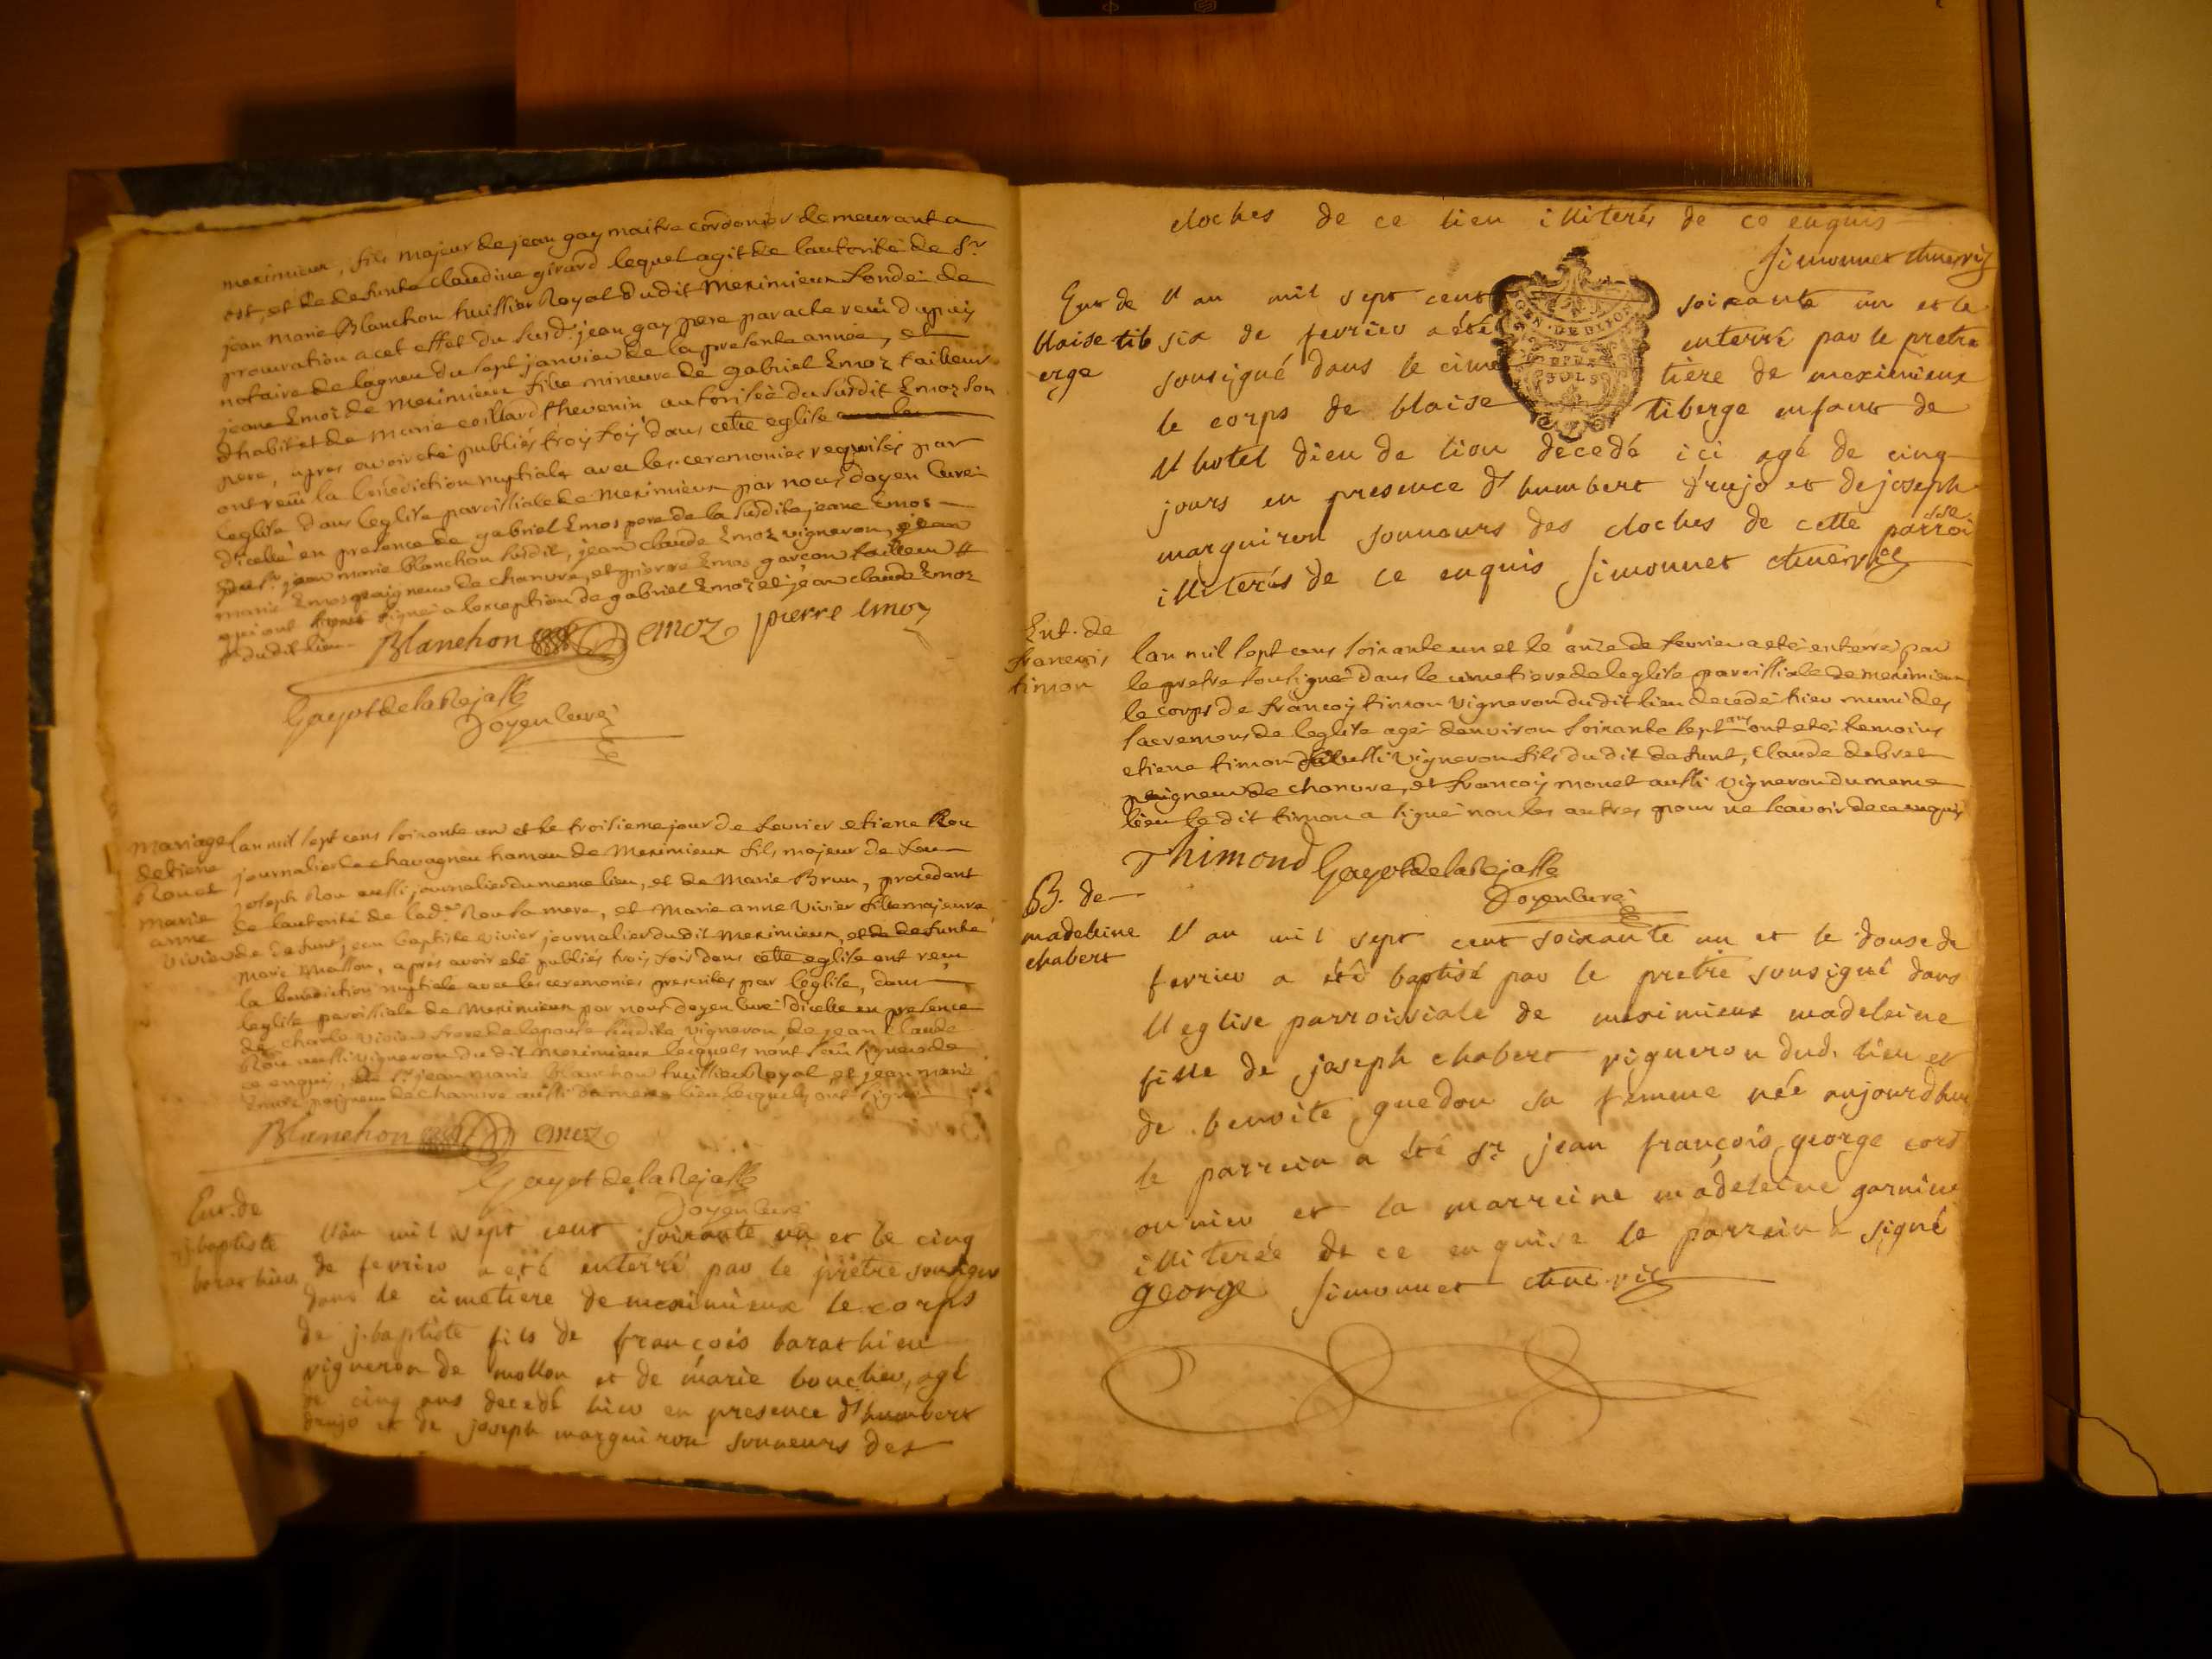 meximieux, fils majeur de jean gay maitre cordonier demeurant a
est, et de defunte Claudine girard lequel agit de lautorité de Sr
jean marie Blanchon huissier Royal dudit Meximieux fondé de
procuration a cet effet du susd. jean gay pere par acte receu dupuy
notaire de lagneu du sept janvier de la presente année, et
jeane Emoz de Meximieux fille mineure de gabriel Emoz tailleur
dhabit et de Marie coillard thevenin, autorisée du susdit Emoz son
pere, apres avoir eté publiés troy foy dans cette eglise
ont receu la benediction nuptiale avec les ceremonies requises par
leglise dans leglise paroissiale de Meximieux par nous doyen Curé
dicelle en presence de gabriel Emoz pere de la susdite jeane Emoz
jean marie blanchon susdit, jean claude Emoz vigneron, jean
marie Emoz peigneur de chanvre, et pierre Emoz garçon tailleur #
qui ont signé a lexception de gabriel Emoz et jean claude Emoz
# dudit lieu
Blanchon emoz pierre emoz
Gayot de la Rejasse
Doyen Curé
mariage
detiene
Rou et
marie
anne
Vivier
lan mil sept cens soixante un et le troisieme jour de fevrier etiene Rou
journalier de chavagneu hamau de Meximieux fils majeur de feu
joseph Rou aussi journalier du meme lieu, et de Marie Brun, procedant
de lautorité de lad. Rou sa mere, et Marie anne Vivier fille majeure
de defunt jean baptiste vivier journalier dudit Meximieux, et de defunte
Marie Masson, apres avoir eté publiés trois fois dans cette eglise ont receu
la benediction nuptiale avec les ceremonies prescrites par leglise, dans
leglise paroissiale de Meximieux par nous doyen Curé dicelle en presence
de charle Vivier frere de lepouse susdite vigneron de jean Claude
Rou aussi vigneron dudit Meximieux lesquels n'ont sceu signer de
ce enquis, de Sr jean marie blanchon huissier Royal, et jean marie
Emoz peigneur de chanvre aussi du meme lieu lesquels ont signé
Blanchon emoz
Gayot de la Rejasse
Doyen Curé
Ent. de
j. baptiste
barathieu
l'an mil sept cent soixante un et le cinq
de fevrier a eté enterré par le prêtre sousigné
dans le cimetiere de meximieux le corps
de j. baptiste fils de françois barathieu
vigneron de mollon et de marie boucher, agé
de cinq ans decedé hier en presence d'humbert
drujo et de joseph marguiron sonneurs des
cloches de ce lieu illiterés de ce enquis
simonnet
Ent de
blaise tib
erge
l'an mil sept cent soixante un et le
six de fevrier a été enterré par le pretre
sousigné dans le cimetière de meximieux
le corps de blaise tiberge enfant de
l'hotel dieu de lion decedé ici agé de cinq
jours en presence d'humbert drujo et de joseph
marguiron sonneurs des cloches de cette parroisse
illiterés de ce enquis simonnet
GEN. DE DIJON
SOLS
Ent. de
francois
timon
lan mil sept cens soixante un et le onze de fevrier a eté enterré par
le pretre sousigné dans le cimetiere de leglise paroissiale de meximieux
le corps de francoy timon vigneron dudit lieu decedé hier muni des
sacremens de leglise agé denviron soixante sept ans ont eté temoins
etiene timon aussi vigneron fils du dit defunt, Claude debret
peigneur de chanvre, et francoy monet aussi vigneron du meme
lieu le dit timon a signé non les autres pour ne scavoir de ce enquis
Thimond Gayot de la Rejasse
Doyen Curé
B. de
madeleine
chabert
l'an mil sept cent soixante un et le douse de
fevrier a été baptisé par le pretre sousigné dans
l'eglise parroissiale de meximieux madeleine
fille de joseph chabert vigneron dud. lieu et
de benoite guedon sa femme née aujourdhui
le parrein a été Sr jean françois george cord
onnier et la marreine madeleine garnier
illiterée de ce enquise le parrein a signé
george simonnet